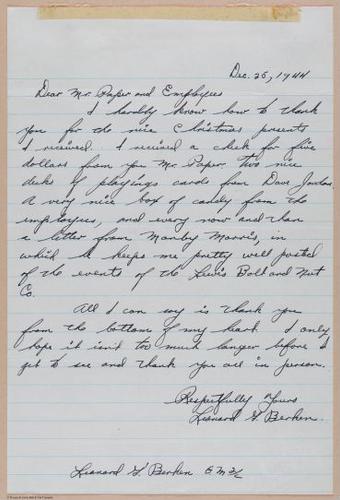 Dec. 25, 1944
Dear Mr. Paper and Employees
I hardly know how to thank
you for the nice Christmas presents
I received. I received a check for five
dollars from you Mr. Paper. Two nice
decks of playings cards from Dave Jordan.
A very nice box of candy from the
employees, and every now and then
a letter from Manley Morris, in
which he keeps me pretty well posted
of the events of the Lewis Bolt and Nut
Co.
All I can say is thank you
from the bottom of my heart. I only
hope it isn't too much longer before I
get to see and thank you all in person.
Respectfully Yours
Leonard G Berken.
Leonard G Berken G M 3/c